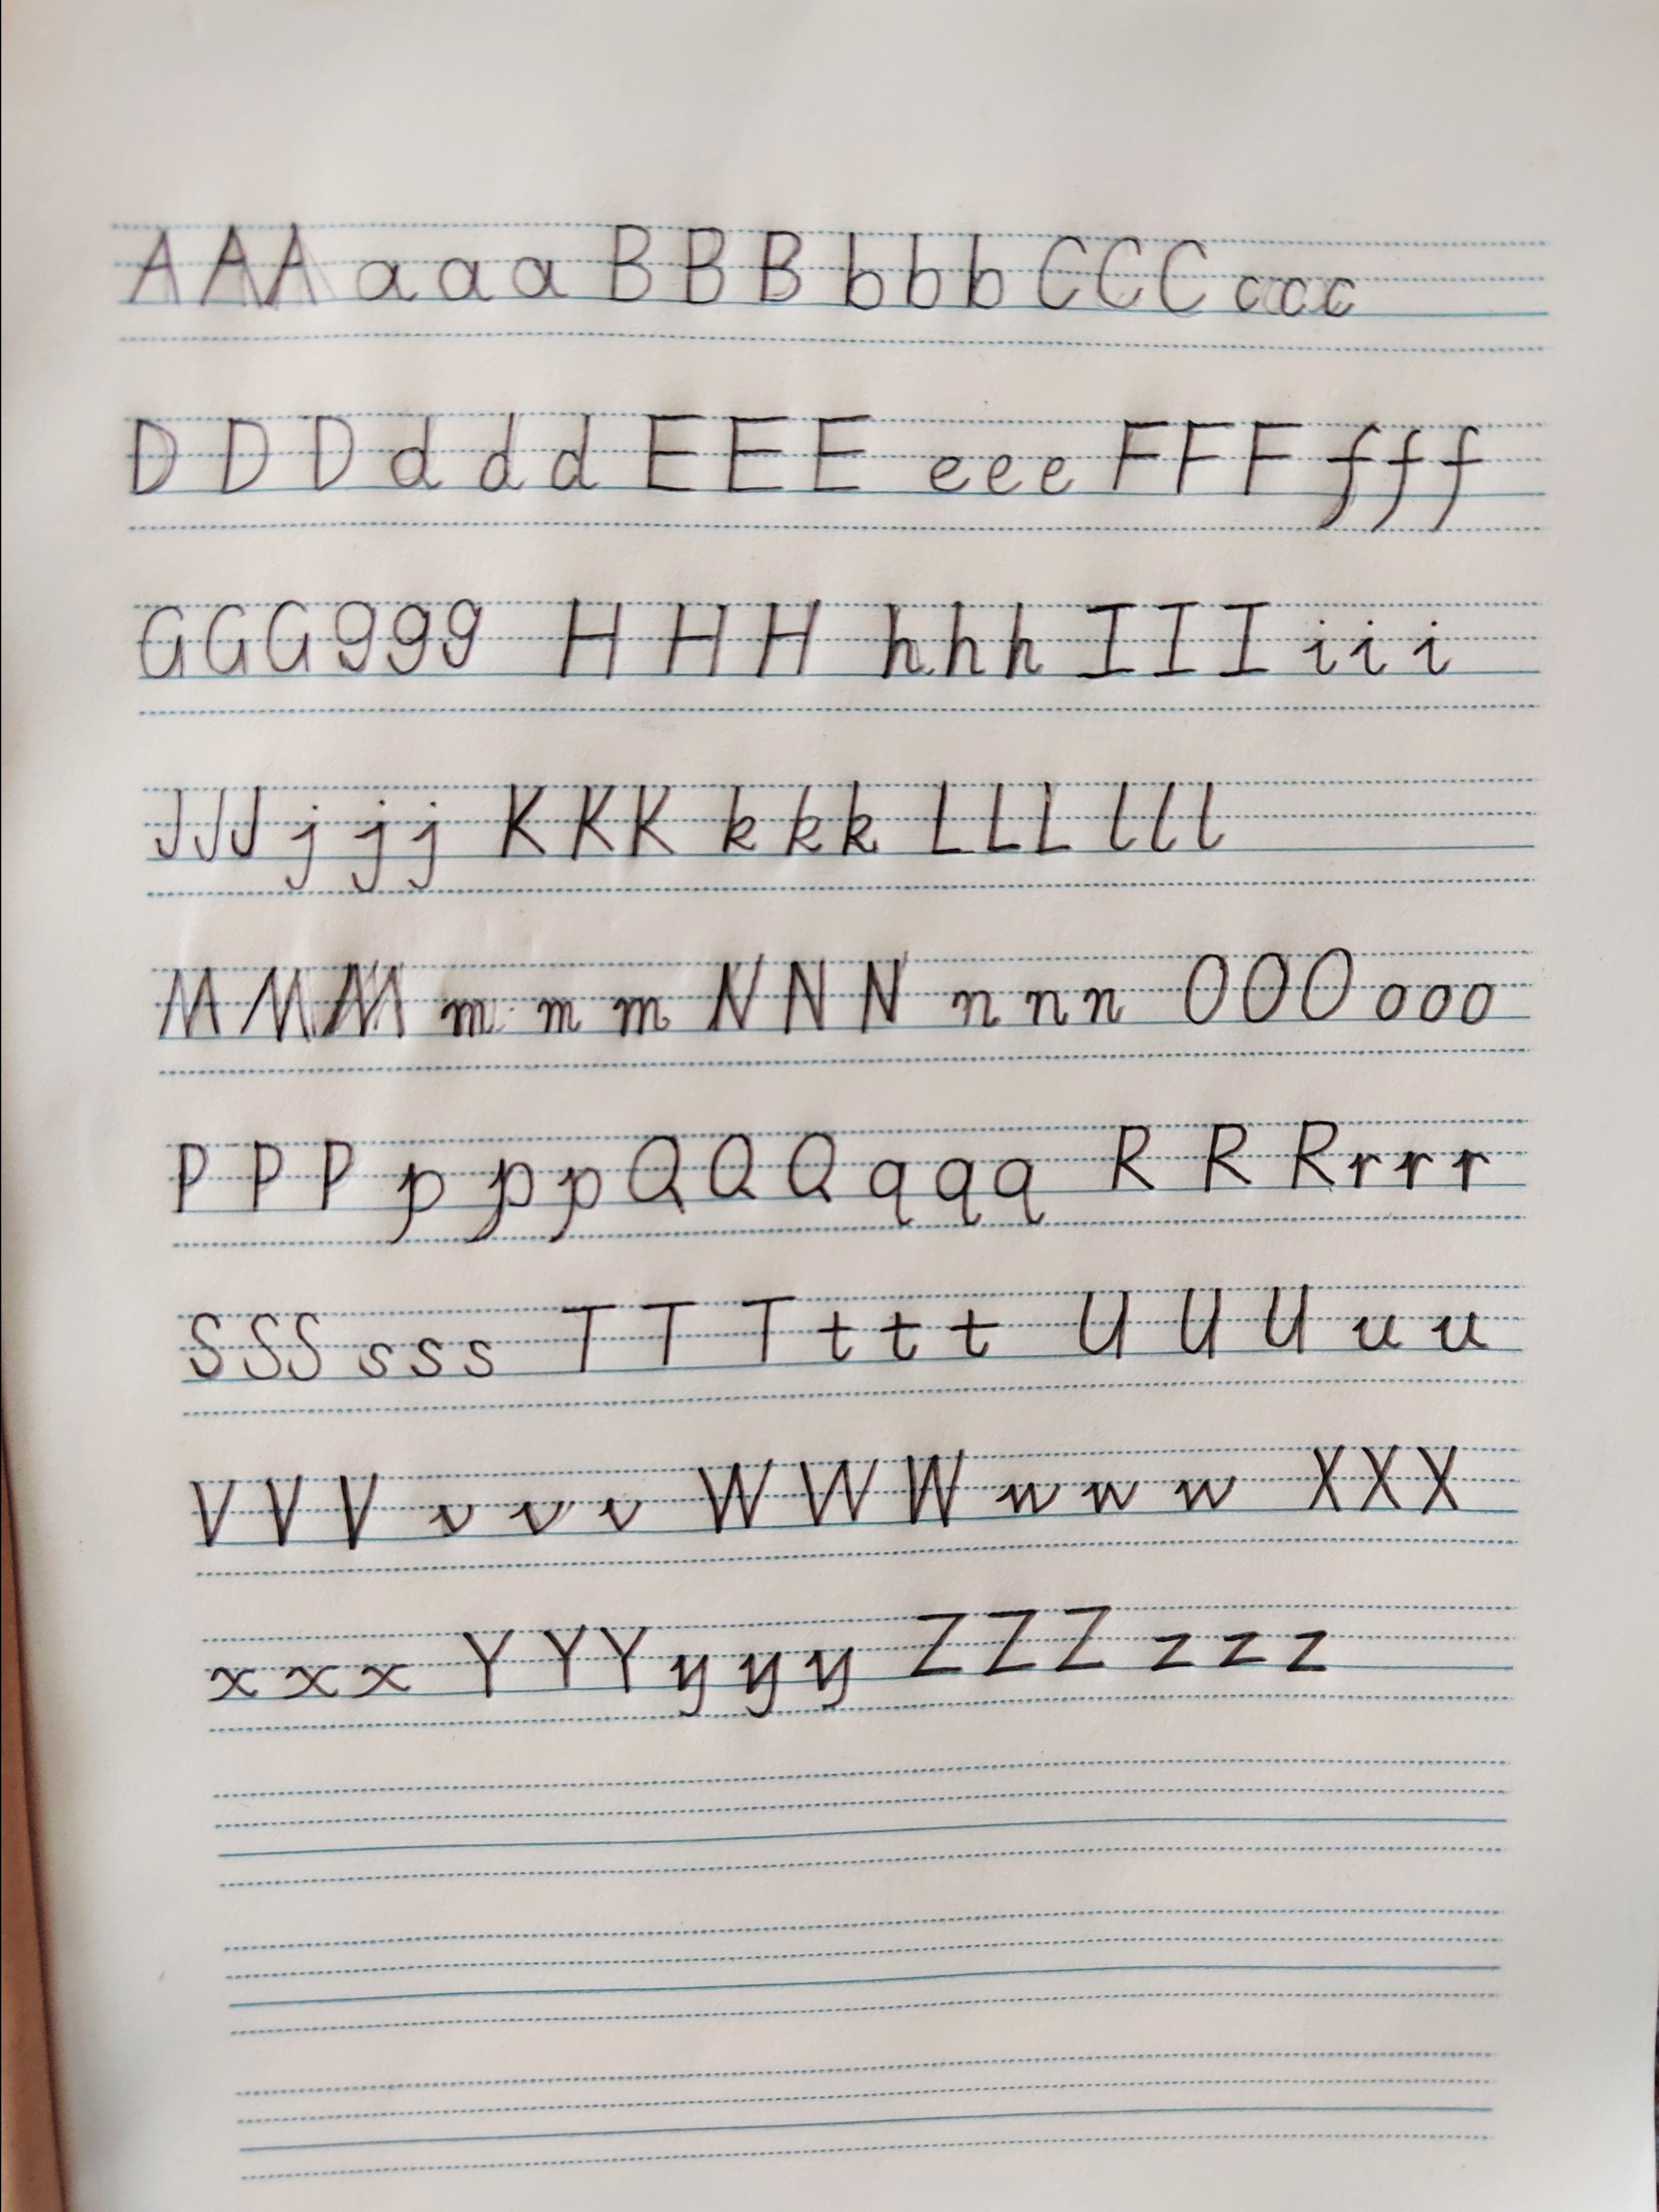 A A A a a a B B B b b b C C C c c c
D D D d d d E E E e e e F F F f f f
G G G g g g H H H h h h I I I i i i
J J J j j j K K K k k k L L L l l l
M M M m m m N N N n n n O O O o o o
P P P p p p Q Q Q q q q R R R r r r
S S S s s s T T T t t t U U U u u
V V V v v v W W W w w w X X X
x x x Y Y Y y y y Z Z Z z z z